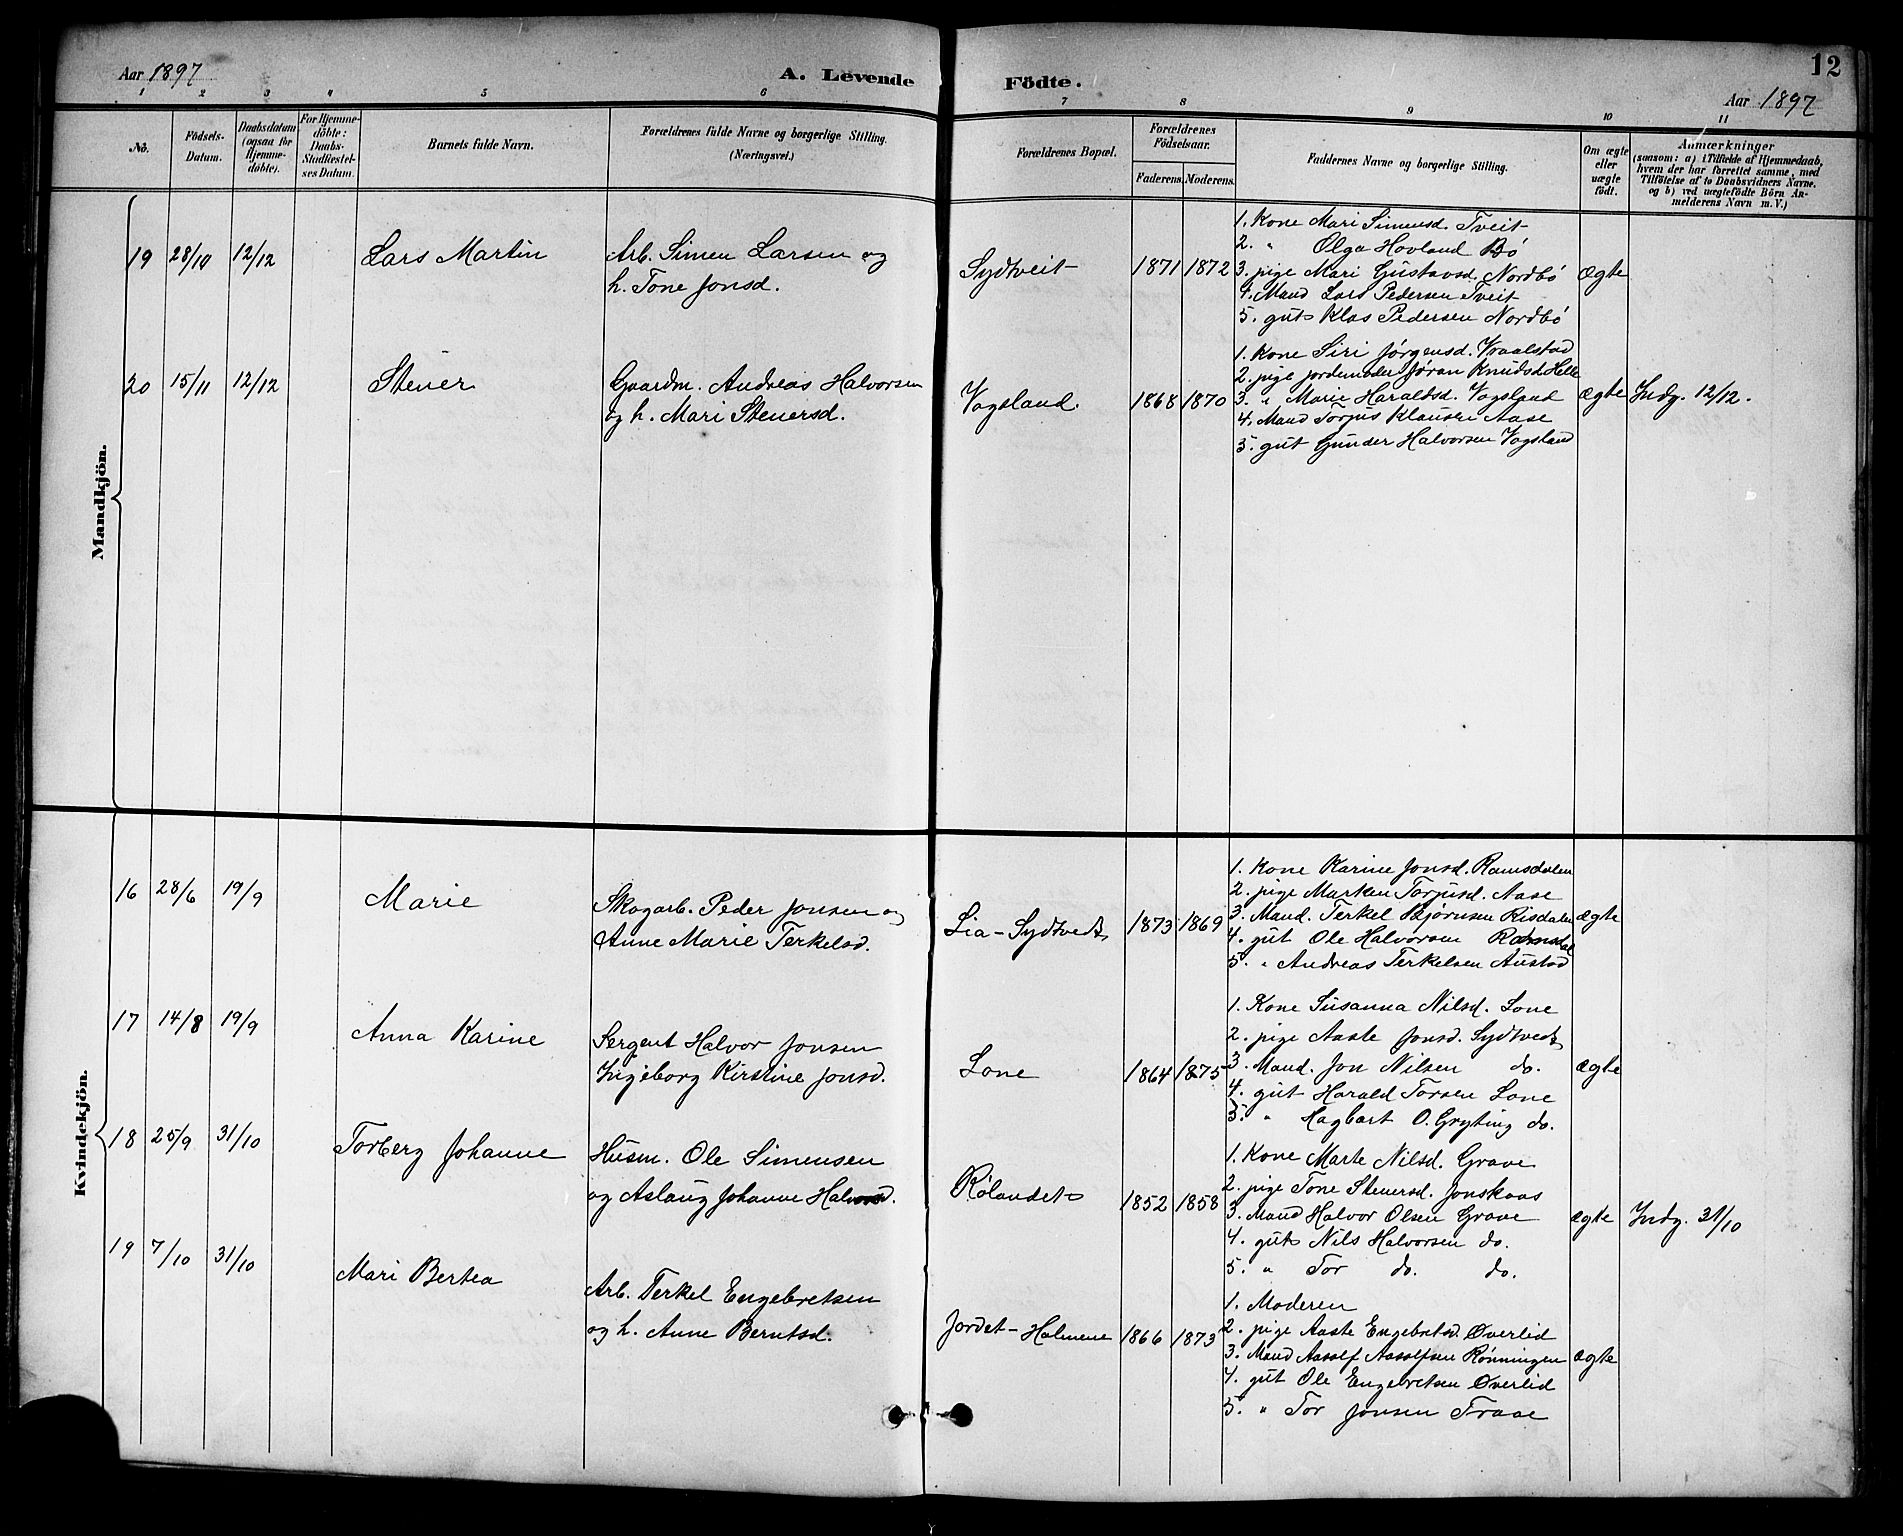 Aar 1897
A. Levende Födte.
12
Aar 1897
1 2 3 4 5 6 7 8 9 10 11
No.
Födsels-Datum.
Daabsdatum (ogsaa for Hjemme-döbte).
For Hjemme-döbte: Daabs-Stadfæstel-ses Datum.
Barnets fulde Navn.
Forældrenes fulde Navne og borgerlige Stilling. (Næringsvei.)
Forældrenes Bopæl.
Forældrenes Födselsaar.
Faderens. Moderens.
Faddernes Navne og borgerlige Stilling.
Om ægte eller uægte födt.
Anmærkninger (saasom: a) i Tilfælde af Hjemmedaab, hvem der har forrettet samme, med Tilföielse af to Daabsvidners Navne, og b) ved uægtefödte Börn An-melderens Navn m. V.)
Mandkjön.
19 28/10 12/12 Lars Martin
Arb. Simen Larsen og
h. Tone Jonsd.
Sydtveit 1871 1872
1. Kone Mari Simensd. Tveit
2. " Olga Hovland Bö
3. pige Mari Gustavsd. Nordbö
4. Mand Lars Pedersen Tveit
5. gut Klas Pedersen Nordbö
ægte
20 15/11 12/12 Stener
Gaardm. Andreas Halvorsen
og h. Mari Stenersd.
Vagsland. 1868 1870
1. Kone Siri Jørgensd. Vraalstad
2. pige jordemoder Jøran Knudsd. Helle
3. " Marie Haraldsd. Vagsland
4. Mand Torjus Klausen Aase
5. gut Gunder Halvorsen Vagsland
ægte Indg. 12/12.
Kvindekjön.
16 28/6 19/9 Marie
Skogarb. Peder Jonsen og
Anne Marie Terkelsd.
Lia - Sydtvedt 1873 1869
1. Kone Karine Jonsd. Ramsdalen
2. pige Marken Torjusd. Aase
3. Mand. Terkel Bjørnsen Risdalen
4. gut Ole Halvorsen Ramsdal
5. " Andreas Terkelsen Austad
ægte
17 14/8 19/9 Anna Karine
Sergent Halvor Jonsen
Ingeborg Kirstine Jonsd.
Lone 1864 1875
1. Kone Susanna Nilsd. Lone
2. pige Aaste Jonsd. Sydtvedt
3. Mand. Jon Nilsen do.
4. gut Harald Torsen Lone
5. " Hagbart O. Gryting do.
ægte
18 25/9 31/10 Torberg Johanne
Husm. Ole Simensen
og Aslaug Johanne Halvorsd.
Rölandet 1852 1858
1. Kone Marte Nilsd. Grave
2. pige Tone Stenersd. Jonskaas
3. Mand Halvor Olsen Grave
4. gut Nils Halvorsen do.
5. " Tor do. do.
ægte Indg. 31/10
19 7/10 31/10 Mari Bertea
Arb. Terkel Engebretsen
og h. Anne Berntsd.
Jordet - Holmene 1866 1873
1. Moderen
2. pige Aaste Engebretsd. Øverlid
3. Mand Aasolf Aasolfsen Rönningen
4. gut Ole Engebretsen Øverlid
5. " Tor Jonsen Traae
ægte